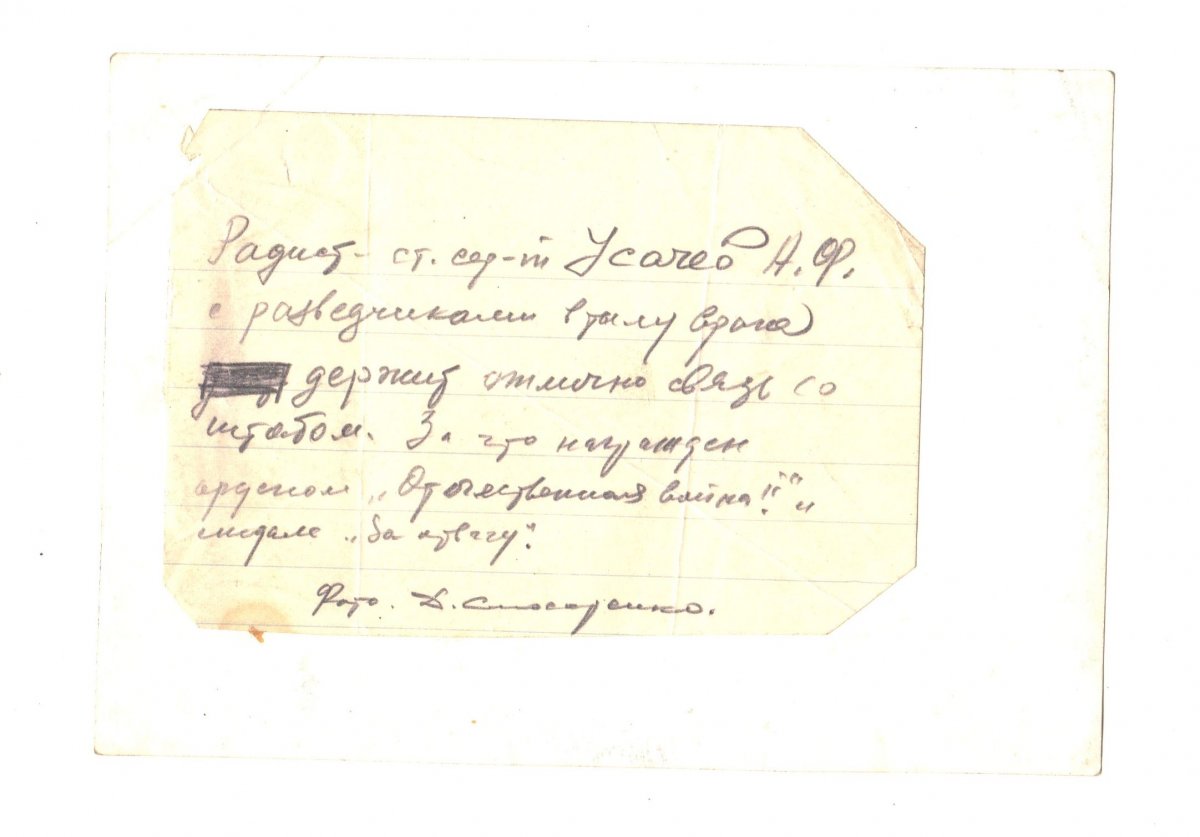 Радист - ст. сер-т Усачев А.Ф.
с разведчиками в тылу врага
держит отлично связь со
штабом. За что награжден
орденом „Отечественная война II" и
медаль „За отвагу".
Фото. Д.